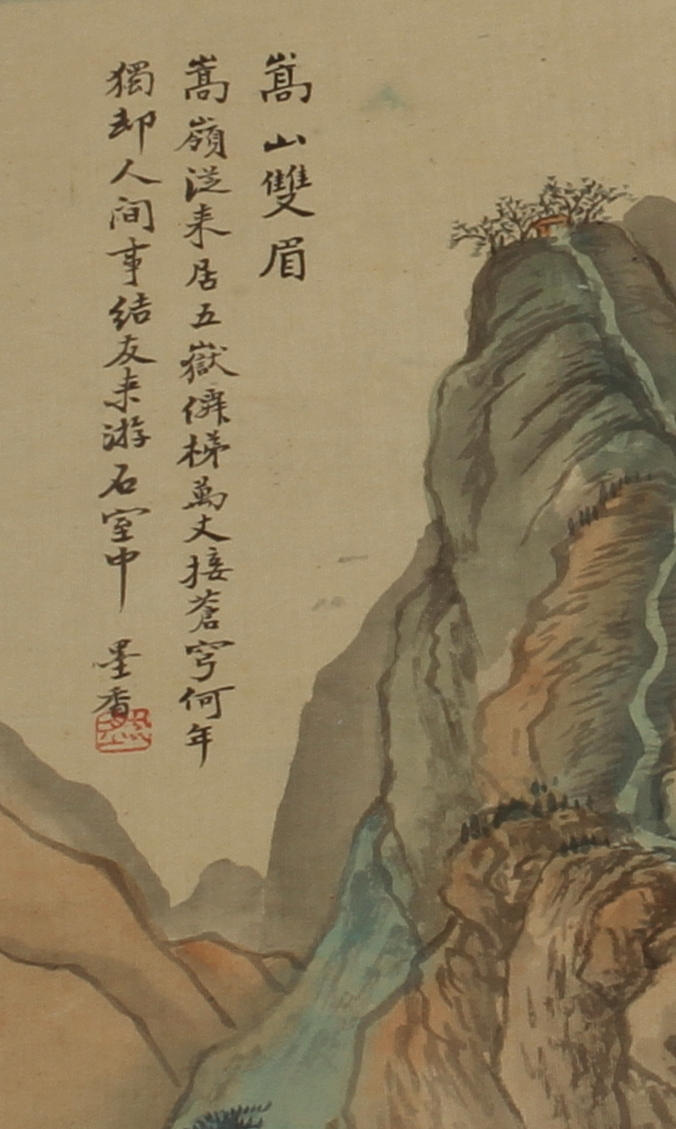 嵩山雙眉
嵩嶺從来居五嶽僊梯萬丈接蒼穹何年
獨却人间事結友来游石室中
墨香